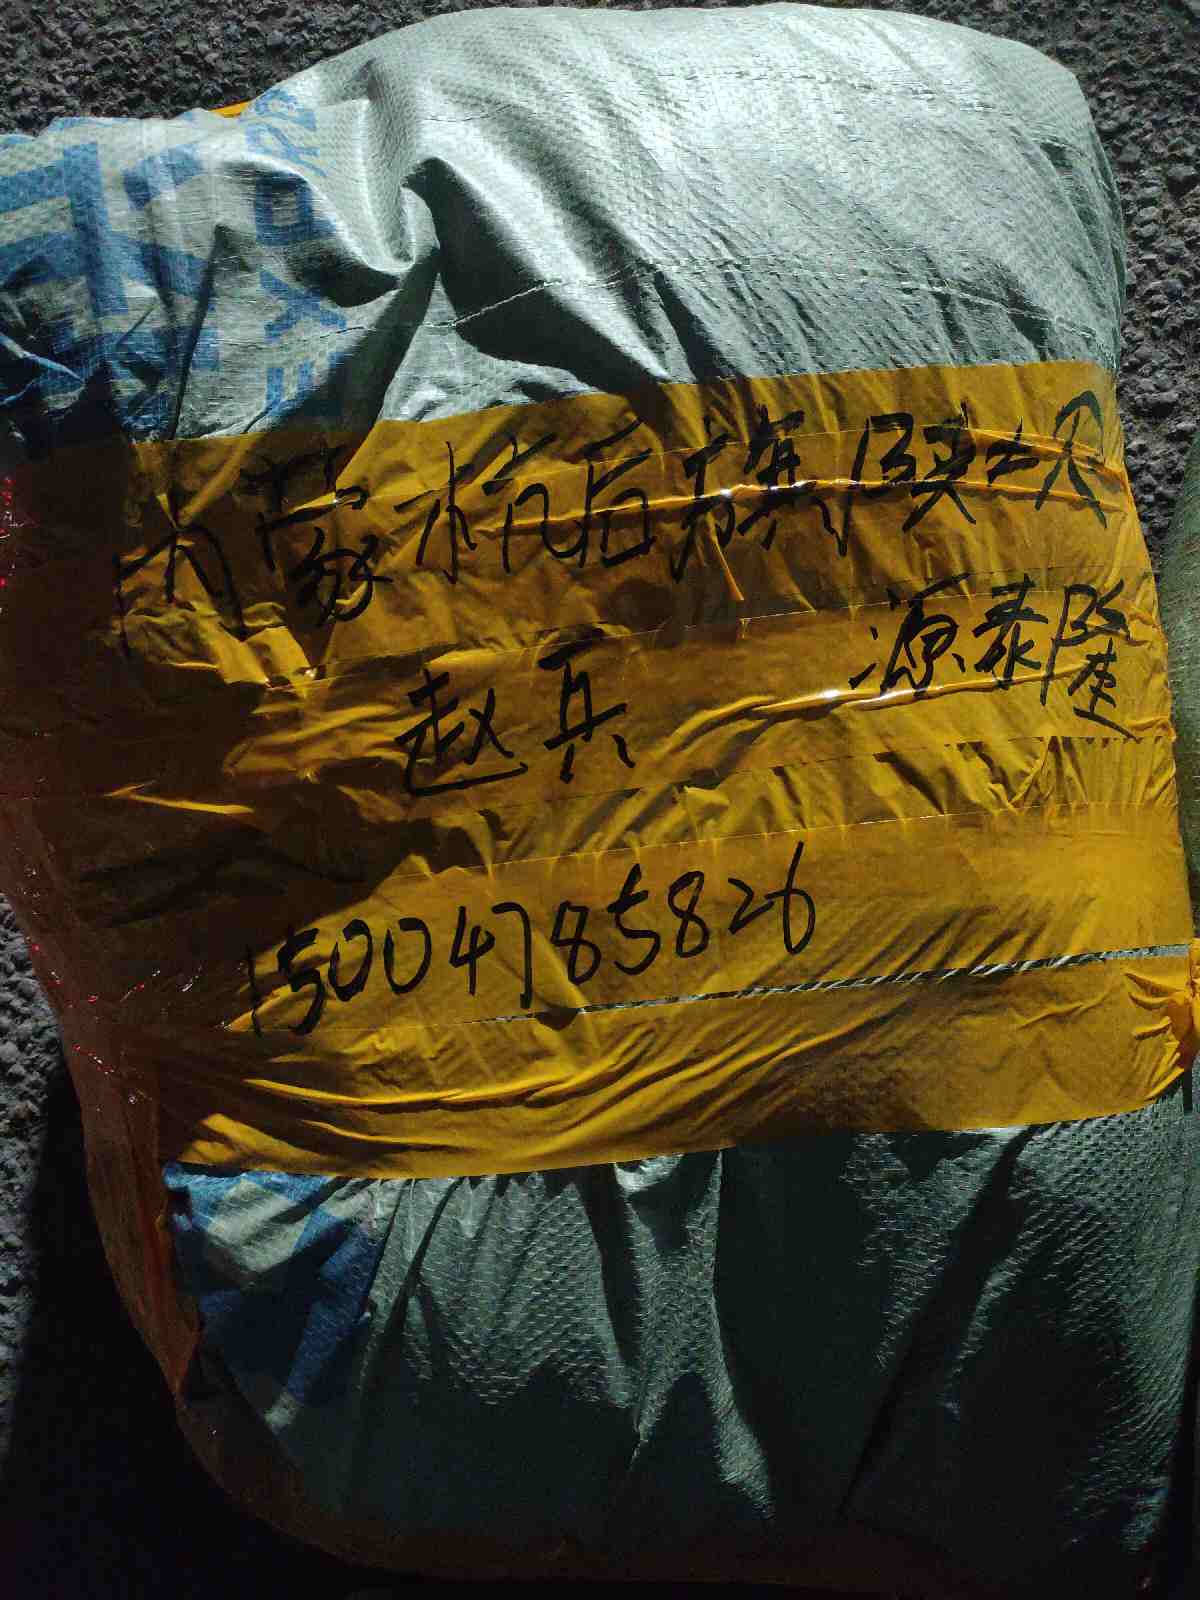 内蒙杭后旗陕坝
源泰隆
赵兵
15004785826